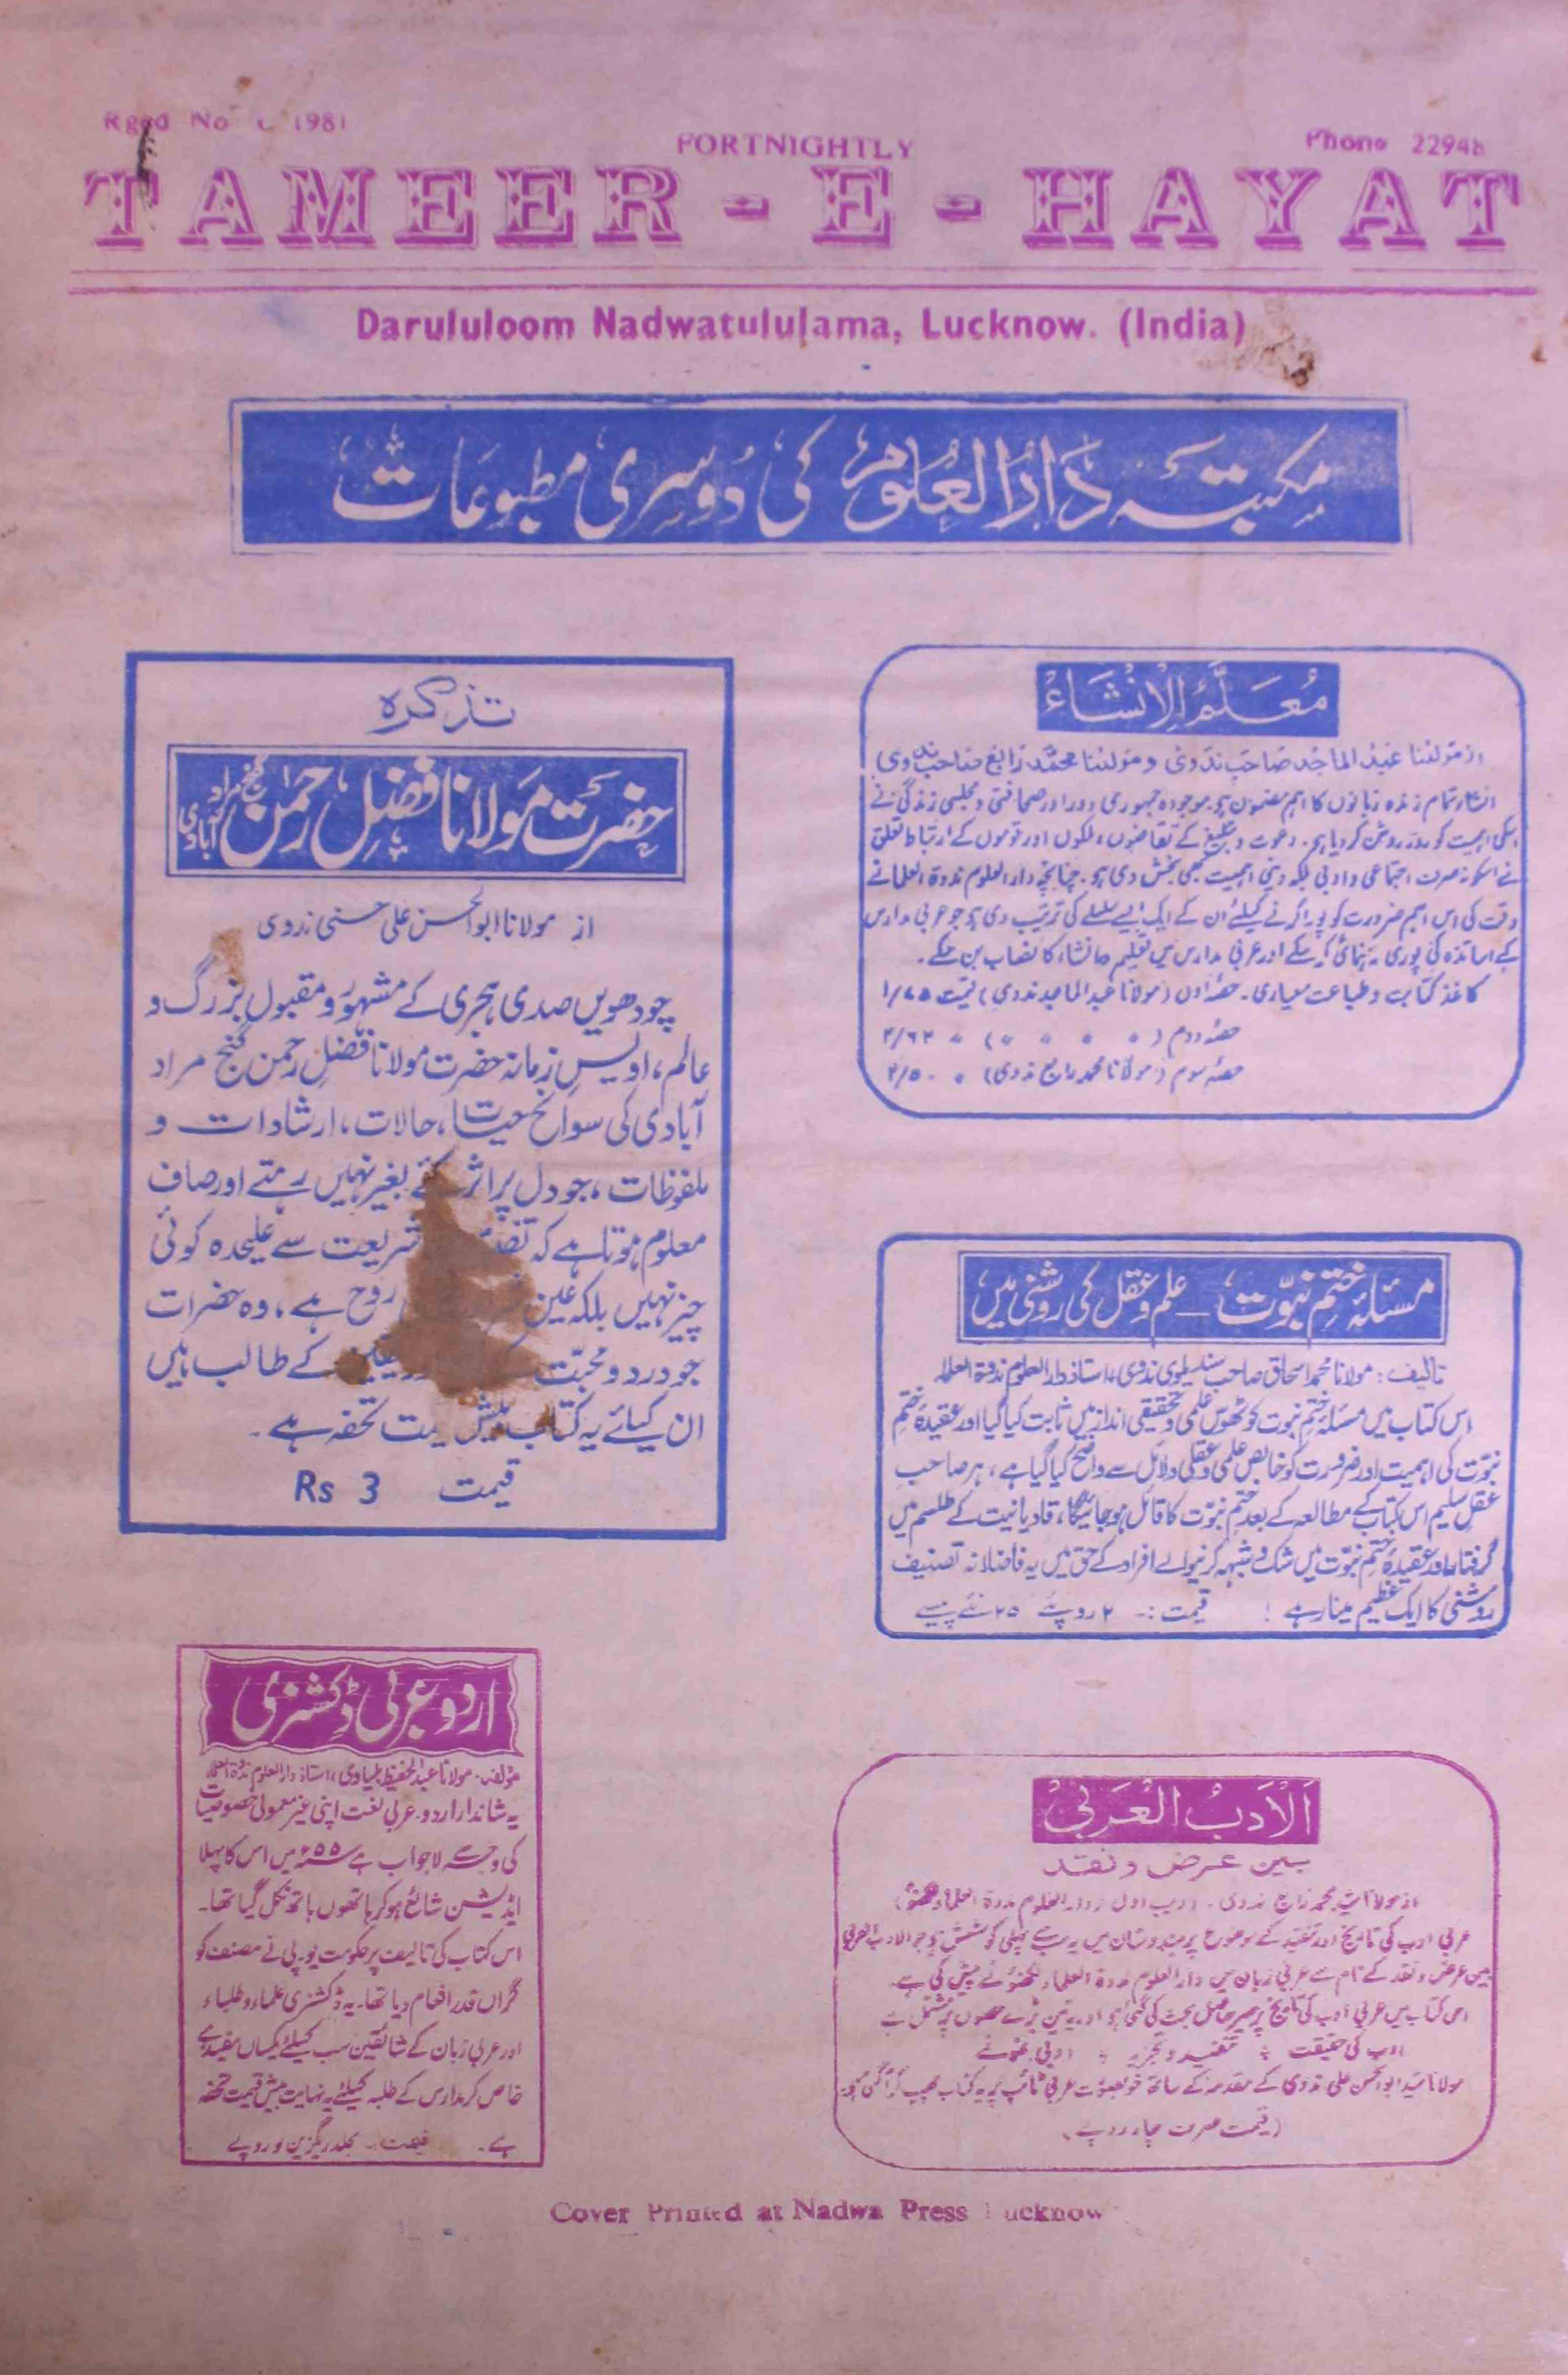 Rged No L 1981
FORTNIGHTLY
Phone 22948
TAMEER - E - HAYAT
Darululoom Nadwatululama, Lucknow. (India)
مکتبہ دارالعلوم کی دوسری مطبوعات
معلم الانشاء
از مولٰنا عبدالماجد صاحب ندوی و مولٰنا محمد رابع صاحب ندوی
انشاء تمام زندہ زبانوں کا اہم مضمون ہے موجودہ جمہوری دور اور صحافتی و مجلسی زندگی نے
اسکی اہمیت کو روز روشن کر دیا ہے۔ دعوت و تبلیغ کے تقاضوں، ملکوں اور قوموں کے ارتباط تعلق
نے اسکو نہ صرف اجتماعی و ادبی بلکہ دینی اہمیت بھی بخش دی ہے۔ چنانچہ دارالعلوم ندوۃ العلما نے
وقت کی اس اہم ضرورت کو پورا کرنے کیلئے ان کے ایک ایسے سلسلے کی ترتیب دی ہے جو عربی مدارس
کے اساتذہ کی پوری رہنمائی کر سکے اور عربی مدارس میں تعلیم و انشاء کا نصاب بن سکے۔
کاغذ کتابت و طباعت معیاری۔ حصۂ اول (مولانا عبدالماجد ندوی) قیمت ۱/۷۵
حصۂ دوم ( " " " " ) " ۲/۶۲
حصۂ سوم (مولانا محمد رابع ندوی) " ۲/۵۰
تذکرہ
حضرت مولانا فضل رحمٰن گنج مراد آبادی
از مولانا ابوالحسن علی حسنی ندوی
چودھویں صدی ہجری کے مشہور و مقبول بزرگ و
عالم، اویس زمانہ حضرت مولانا فضل رحمن گنج مراد
آبادی کی سوانح حیات، حالات، ارشادات و
ملفوظات، جو دل پر اثر کئے بغیر نہیں رہتے اور صاف
معلوم ہوتا ہے کہ شریعت سے علیحدہ کوئی
چیز نہیں بلکہ عین روح ہے، وہ حضرات
جو درد و محبت کے طالب ہیں
ان کیلئے یہ کتاب بیش قیمت تحفہ ہے۔
قیمت Rs 3
مسئلۂ ختم نبوت – علم و عقل کی روشنی میں
تالیف: مولانا محمد اسحاق صاحب سندیلوی ندوی، استاذ دارالعلوم ندوۃ العلماء
اس کتاب میں مسئلہ ختم نبوت کو ٹھوس علمی و تحقیقی انداز میں ثابت کیا گیا اور عقیدۂ ختم
نبوت کی اہمیت اور ضرورت کو خالص علمی و عقلی دلائل سے واضح کیا گیا ہے، ہر صاحب
عقل سلیم اس کتاب کے مطالعہ کے بعد ختم نبوت کا قائل ہو جائیگا، قادیانیت کے طلسم میں
گرفتار اور عقیدۂ ختم نبوت میں شک و شبہہ کرنیوالے افراد کے حق میں یہ فاضلانہ تصنیف
روشنی کا ایک عظیم مینار ہے ! قیمت :۔ ۲ روپئے ۲۵ نئے پیسے
اردو عربی ڈکشنری
مؤلفہ۔ مولانا عبدالحفیظ بلیاوی، استاذ دارالعلوم ندوۃ العلماء
یہ شاندار اردو۔ عربی لغت اپنی غیر معمولی خصوصیات
کی وجہ سے لاجواب ہے ۵۵ء میں اس کا پہلا
ایڈیشن شائع ہو کر ہاتھوں ہاتھ نکل گیا تھا۔
اس کتاب کی تالیف پر حکومت یو۔پی نے مصنف کو
گراں قدر انعام دیا تھا۔ یہ ڈکشنری علماء و طلباء
اور عربی زبان کے شائقین سب کیلئے یکساں مفید ہے
خاص کر مدارس کے طلبہ کیلئے یہ نہایت بیش قیمت تحفہ
ہے۔ قیمت:۔ مجلد ریگزین ۶ روپے
الادب العربی
بین عرض و نقد
از مولانا محمد رابع ندوی۔ (ادیب اول دارالعلوم ندوۃ العلماء لکھنؤ)
عربی ادب کی تاریخ اور تنقید کے موضوع پر ہندوستان میں یہ سب سے پہلی کوشش ہے جو الادب العربی
بین عرض و نقد کے نام سے عربی زبان میں دارالعلوم ندوۃ العلماء لکھنؤ نے پیش کی ہے۔
اس کتاب میں عربی ادب کی تاریخ پر سیر حاصل بحث کی گئی ہے اور یہ تین بڑے حصوں پر مشتمل ہے
ادب کی حقیقت ، تنقید و تجزیہ ، ادبی نمونے
مولانا سید ابوالحسن علی ندوی کے مقدمہ کے ساتھ خوبصورت عربی ٹائپ پر یہ کتاب چھپ کر آ گئی ہے۔
(قیمت صرف چار روپے)
Cover Printed at Nadwa Press Lucknow